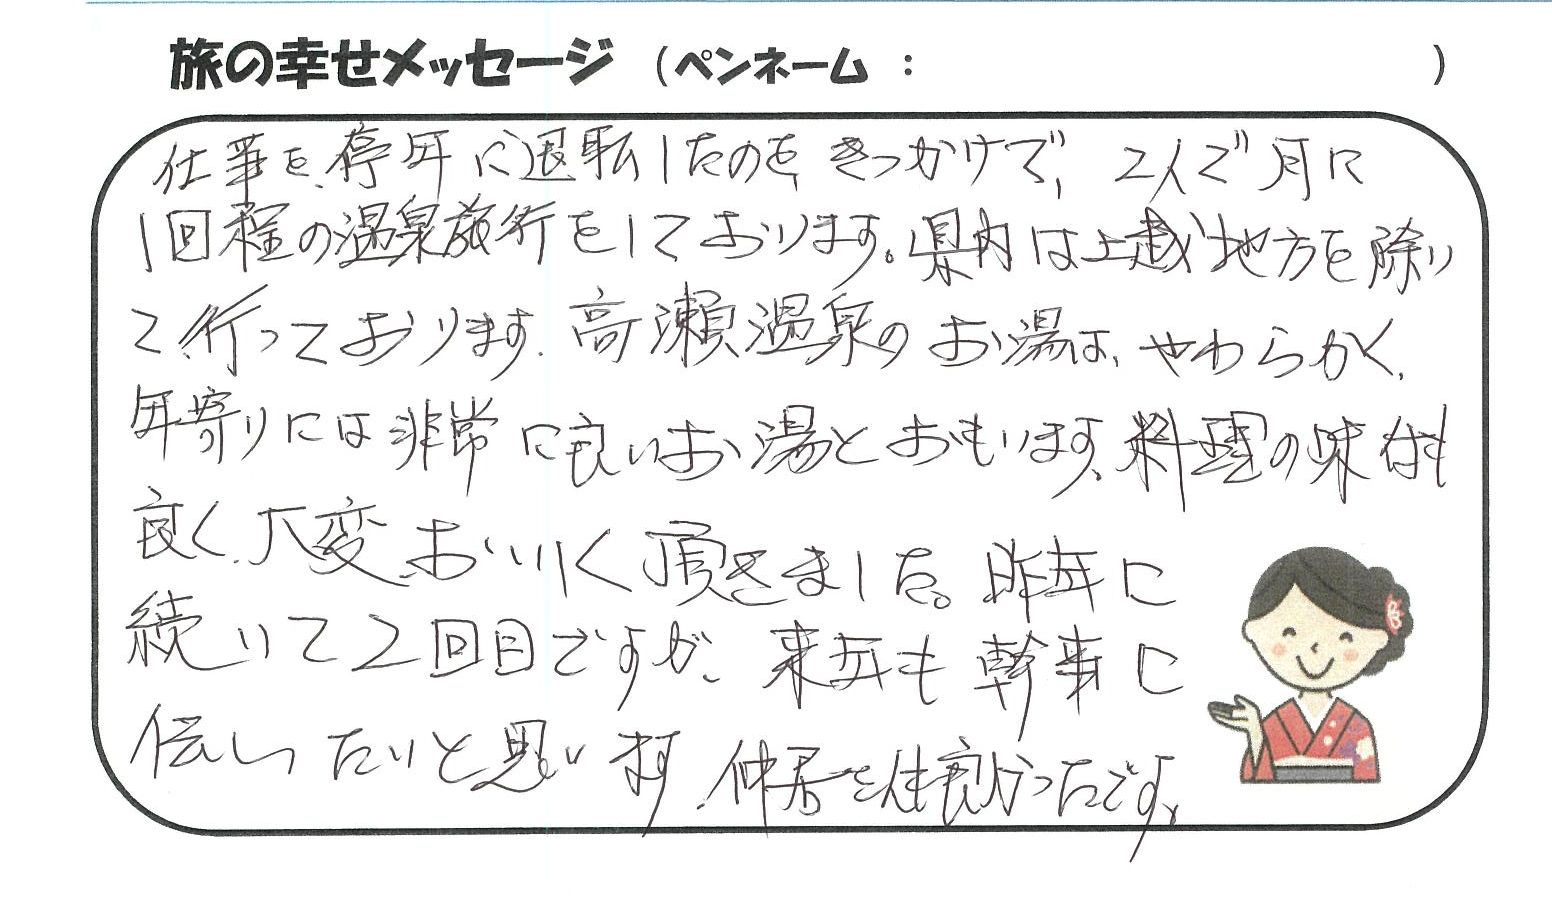 旅の幸せメッセージ（ペンネーム：　　　）
仕事を、停年に退転したのを、きっかけで、2人で月に
1回程の温泉旅行をしております。県内は上越地方を除い
て、行っております。高瀬温泉のお湯は、やわらかく、
年寄りには非常に良いお湯とおもいます。料理の味付も
良く、大変、おいしく頂きました。昨年に
続いて2回目ですが、来年も幹事に
伝いたいと思います。仲居さんも良かったです。